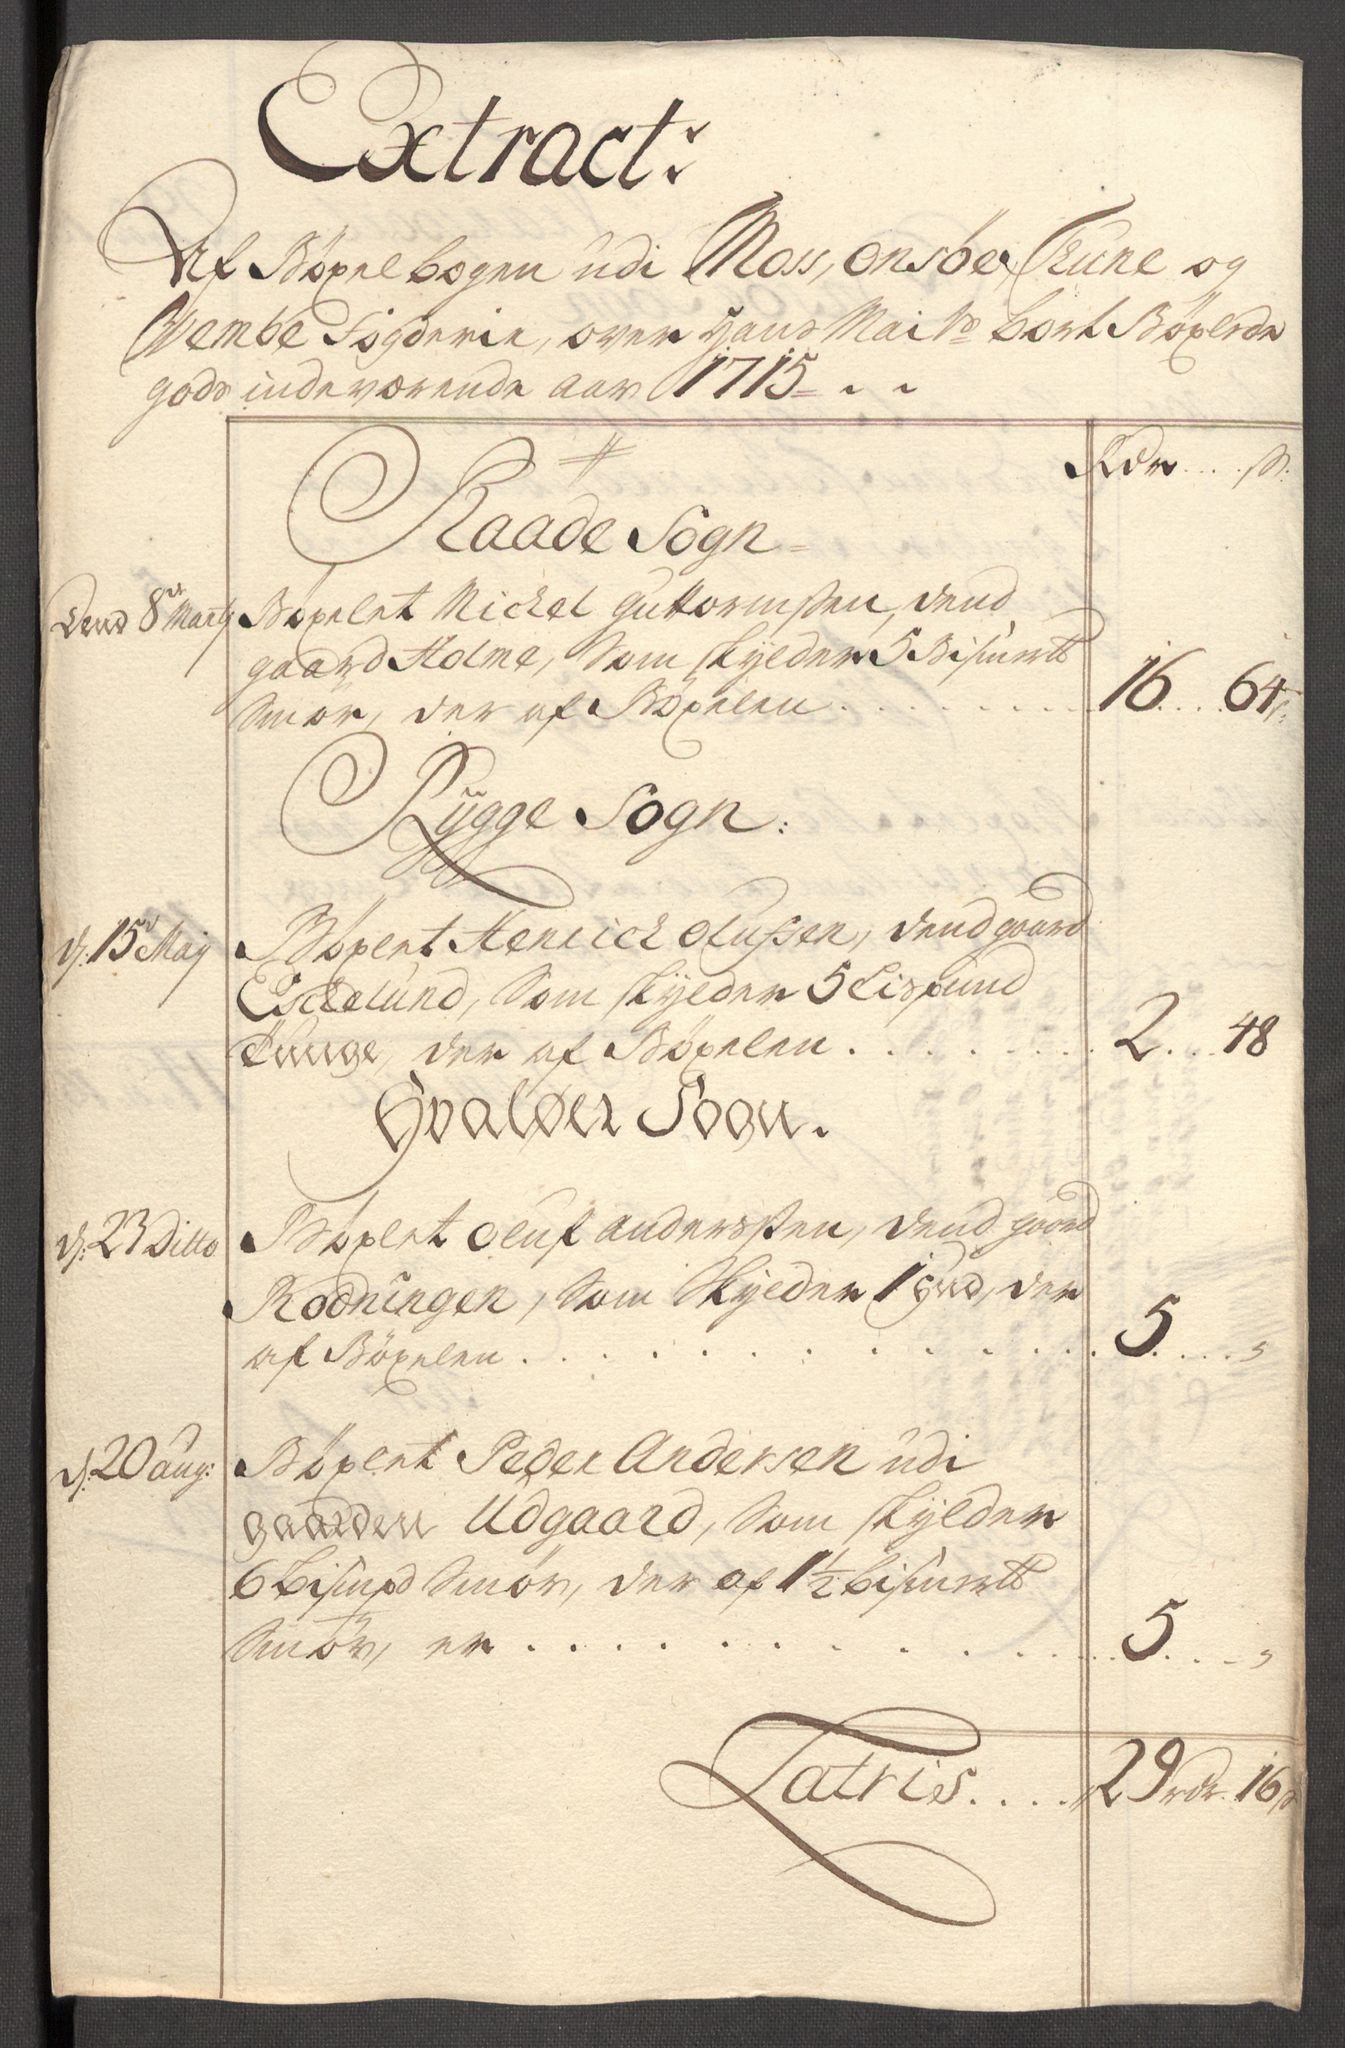 Extract:
Af Böxelbogen udi Moss, Onsöe, Tune og
Wembe fogderie, over Hans Maits bort Böxlede
gods indeværende aar 1715 = . .
Rdr . . . . ß.
Raade Sogn =
Dend 8de Marty Böxelet Michel Guttormßen, dend
gaard Holme, som skylder 5 Bismerß
Smör, der af Böxelen . . . . . . . . 16 . . . 64 ß:
Rÿgge Sogn:
d: 15d Maij Böxlet Henrich Olufßen, dend gaard
Eskelund, som skylder 5 Lispund
Tunge, der af Böxelen . . . . . . . . 2 . . . 48
Hvaløer Sogn.
d: 23 Ditto Böxlet Oluf Anderssßen, dend gaard
Rødningen, som skylder 1 hud, der
af Böxelen . . . . . . . . . . . . . 5 . . . . „
d: 20 aug: Böxelt Peder Andersen udi
gaarden Udgaard, som skylder
6 bismpd Smör, der af 1½ bismerß
Smör, er . . . . . . . . . . . . . 5 . . . . „
Latris . . . . . 29 rdr. 16 ß